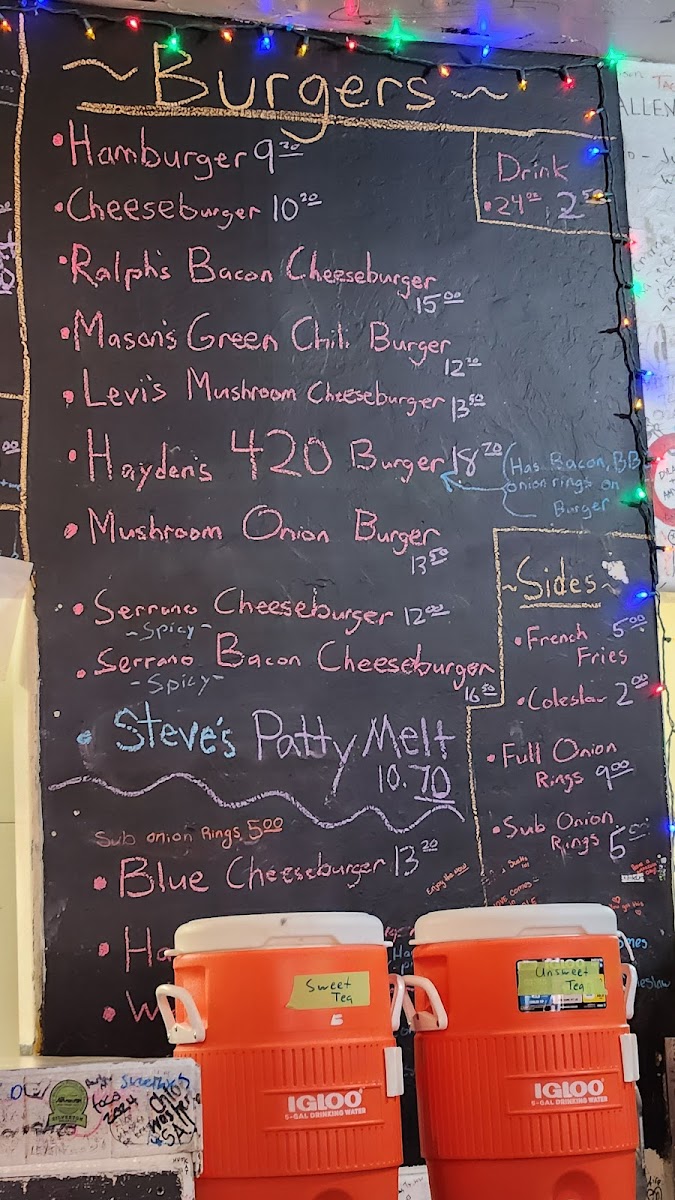 ~ Burgers ~
• Hamburger 9 20
• Cheeseburger 10 20
Drink
• 24 oz 2 50
• Ralph's Bacon Cheeseburger
15 00
• Mason's Green Chili Burger
12 20
• Levi's Mushroom Cheeseburger 13 50
• Hayden's 420 Burger 18 70
(Has Bacon, BBQ
onion rings on
Burger
• Mushroom Onion Burger
13 50
• Serrano Cheeseburger 12 00
- Spicy -
• Serrano Bacon Cheeseburger
- Spicy -
16 50
• Steve's Patty Melt
10.70
Sub onion Rings 5 00
• Blue Cheeseburger 13 20
• Ha
• W
~ Sides ~
• French 5 00
Fries
• Coleslaw 2 00
• Full Onion
Rings 9 00
• Sub Onion
Rings 5
Enjoy the Now!
ALLEN
Sweet
Tea
Unsweet
Tea
IGLOO
5-GAL DRINKING WATER
IGLOO
5-GAL DRINKING WATER
2024